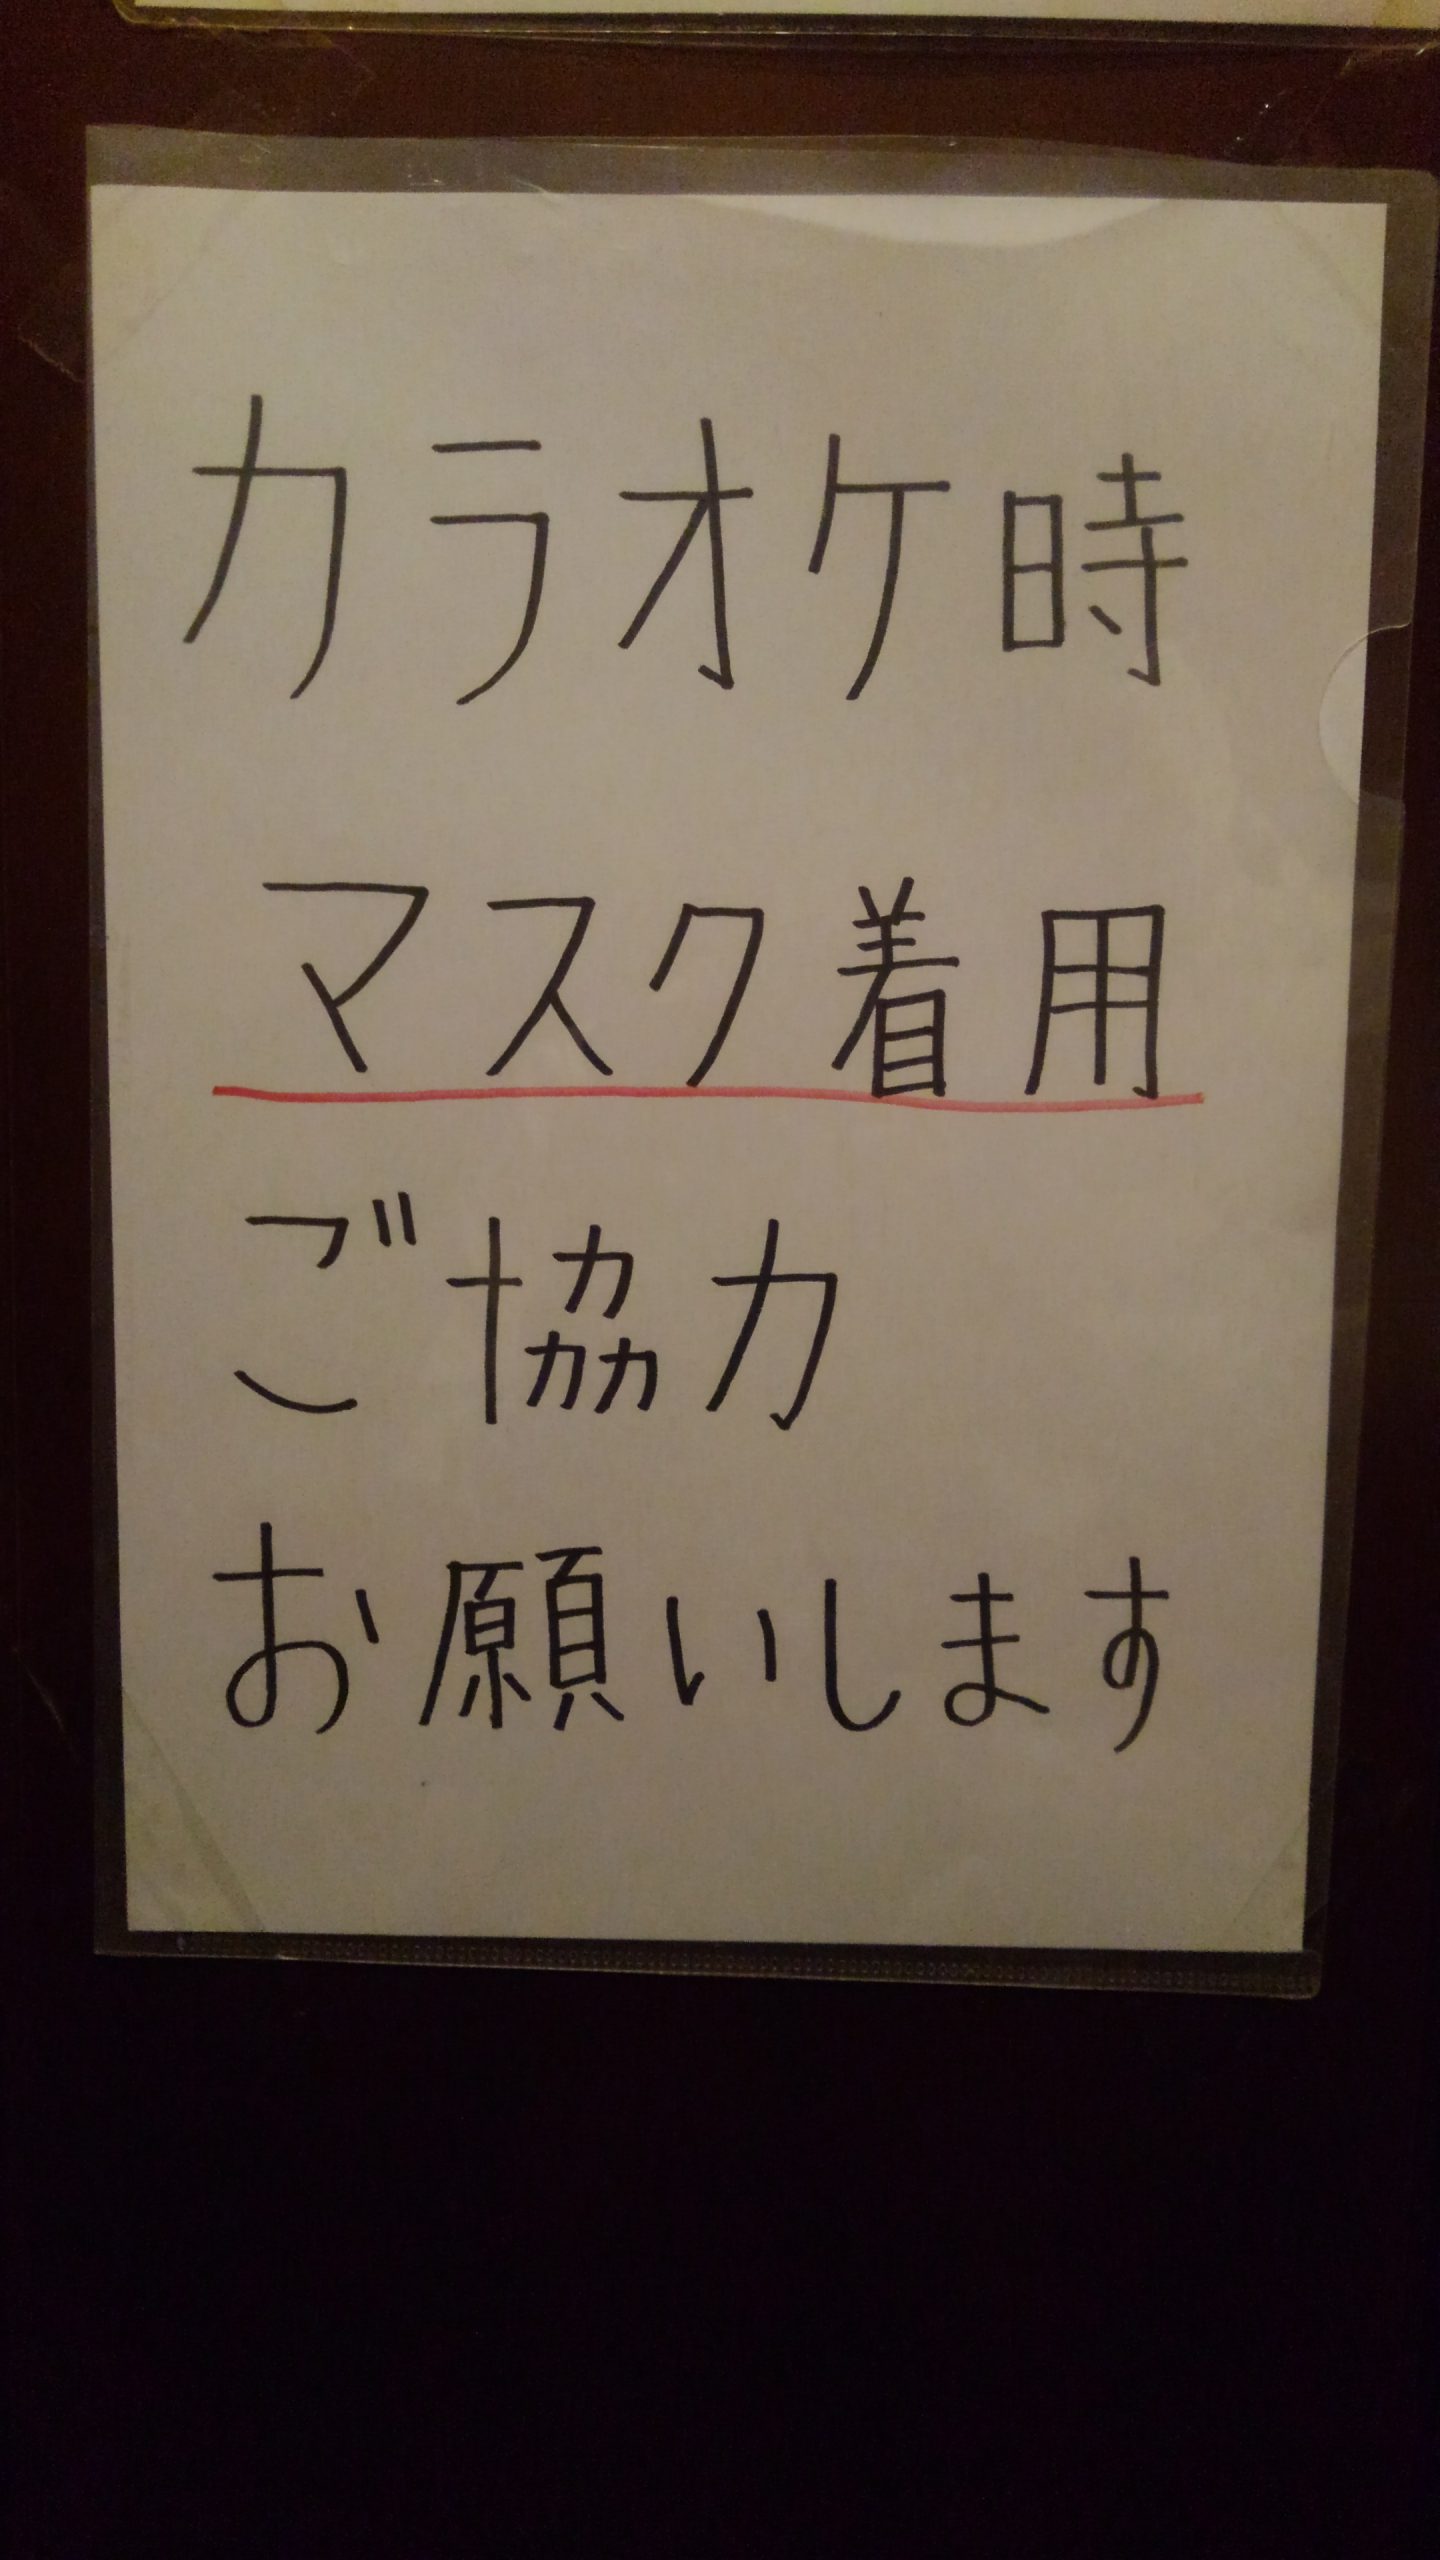 カラオケ時
マスク着用
ご協力
お願いします